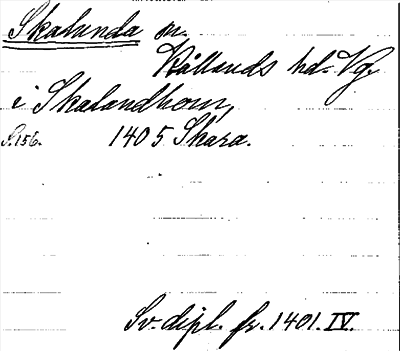 Skalunda sn.
Kållands hd. Vg.
i Skalandhom,
S. 156. 1405 Skara.
Sv. dipl. fr. 1401. IV.